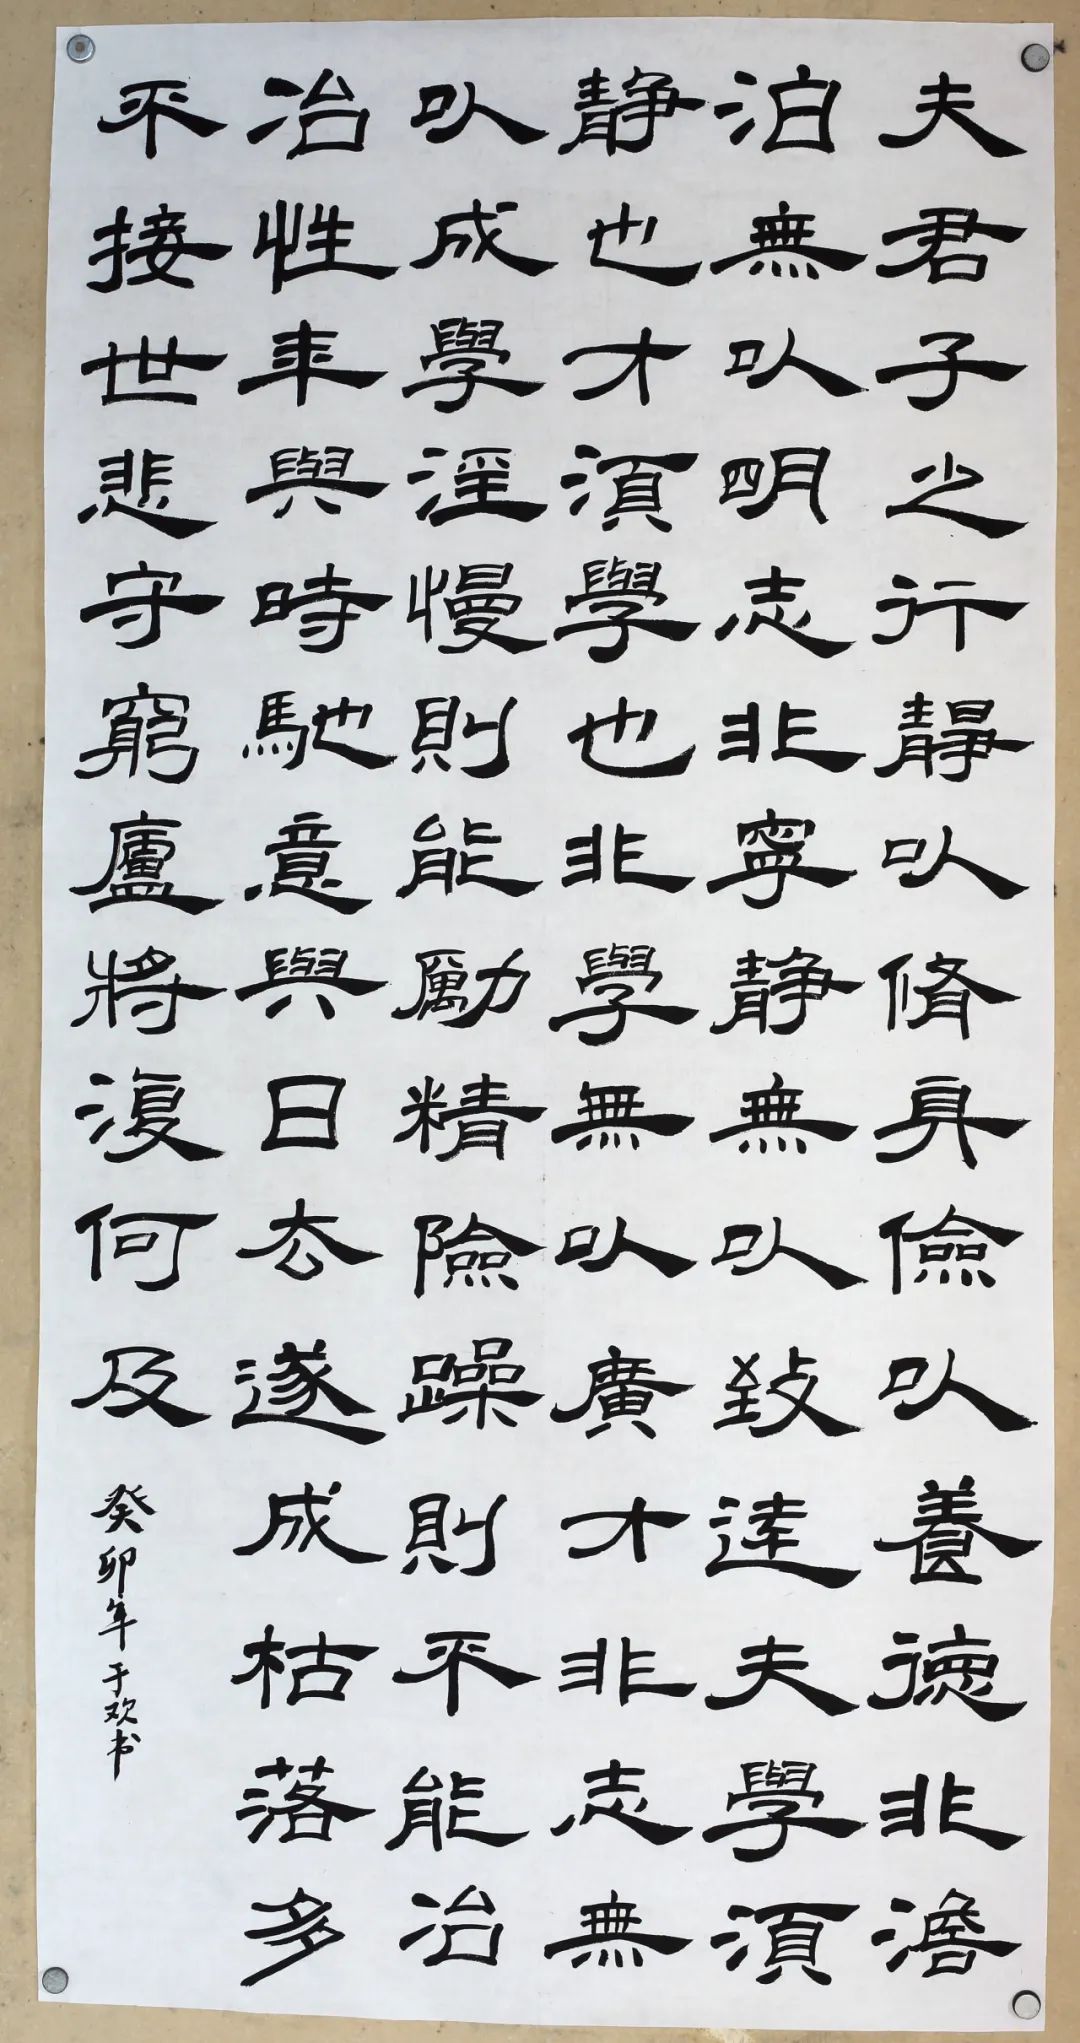 夫君子之行靜以脩身儉以養德非澹
泊無以明志非寧静無以致達夫學須
静也才須學也非學無以廣才非志無
以成學淫慢則能勵精險躁則不能冶
冶性年與時馳意與日去遂成枯落多
不接世悲守窮廬將復何及
癸卯年于欢书